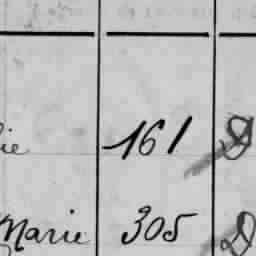 ie 161 D
Marie 305 D